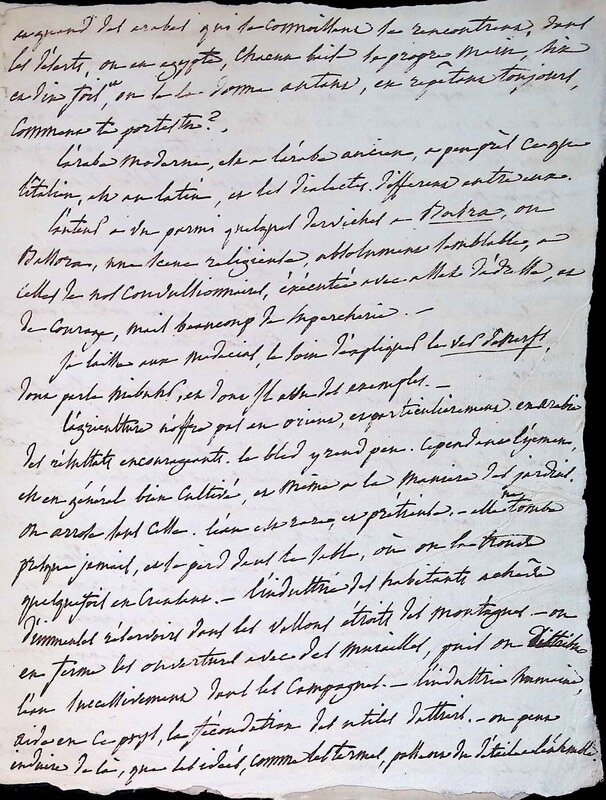 et quand des arabes qui se connoissent se rencontrent, dans
les déserts, ou en egypte, chacun baise sa propre main, dix
en dix fois, ou la donne autant, en répétant toujours,
comment te portes tu?.
L'arabe moderne, est à l'arabe ancien, a peu près ce que
l'italien, est au latin, et les dialectes different entre eux.
L'auteur a vu parmi quelques derviches a Basra, ou
Bassora, une scene religieuse, absolument semblable, a
celles de nos convulsionnaires, éxécutée avec assez d'adresse, et
de courage, mais beaucoup de supercherie. —
Je laisse aux medecins, le soin d'expliquer le ves
dont parle Niebuhr, et dont il a vu des exemples. —
L'agriculture n'offre pas en orient, et particulierement en arabie
des résultats encourageants. le bled y rend peu. cependant l'yemen,
est en général bien cultivé, et même a la maniere des jardins.
on arrose sans cesse. l'eau est rare, et prétieuse. — elle ne tombe
presque jamais, et se perd dans le sable, où on la trouve
quelquefois en creusant. — l'industrie des habitants a
d'immenses réservoirs dans les vallons étroits des montagnes — on
en ferme les ouvertures avec des murailles, puis on distribue
l'eau successivement dans les campagnes. — l'industrie humaine,
aide en ce pays, la fécondation des utiles dattiers. — on peut
induire de là, que les idées, comme les termes, passent du détail a l'ensemble.